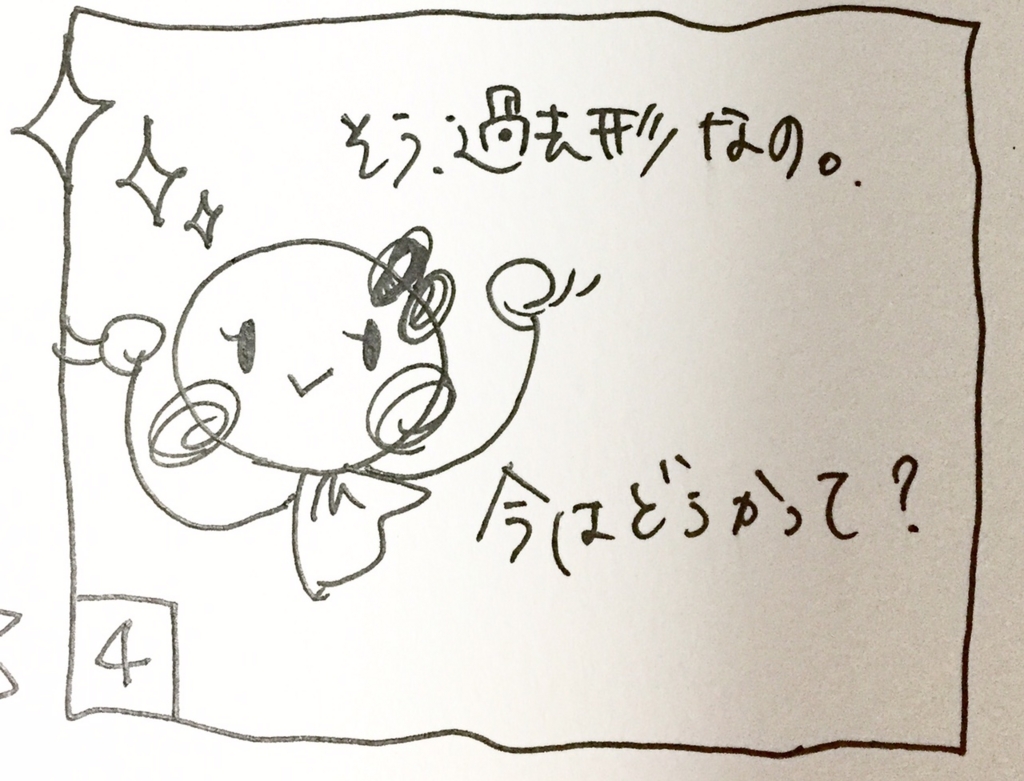 そう、過去形なの。
今はどうかって?
4